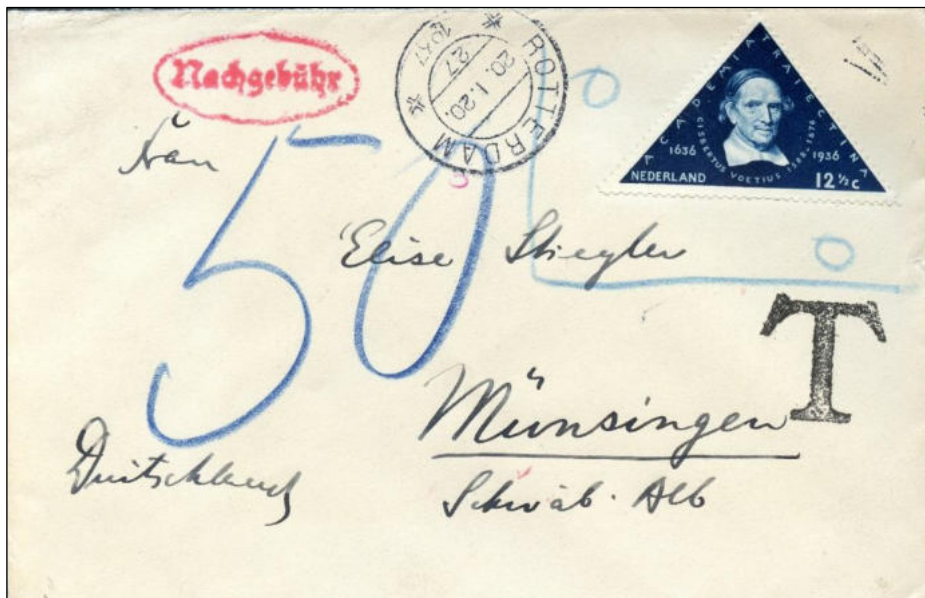 Nachgebühr
ROTTERDAM
20.1.20.
27
1937
ACADEMIA RAIECTINA
GISBERTUS VOETIUS 1588-1676
1636 1936
NEDERLAND 12 ½ c
50
Elise Stiegler
T
Münsingen
Duitschland
Schwäb. Alb